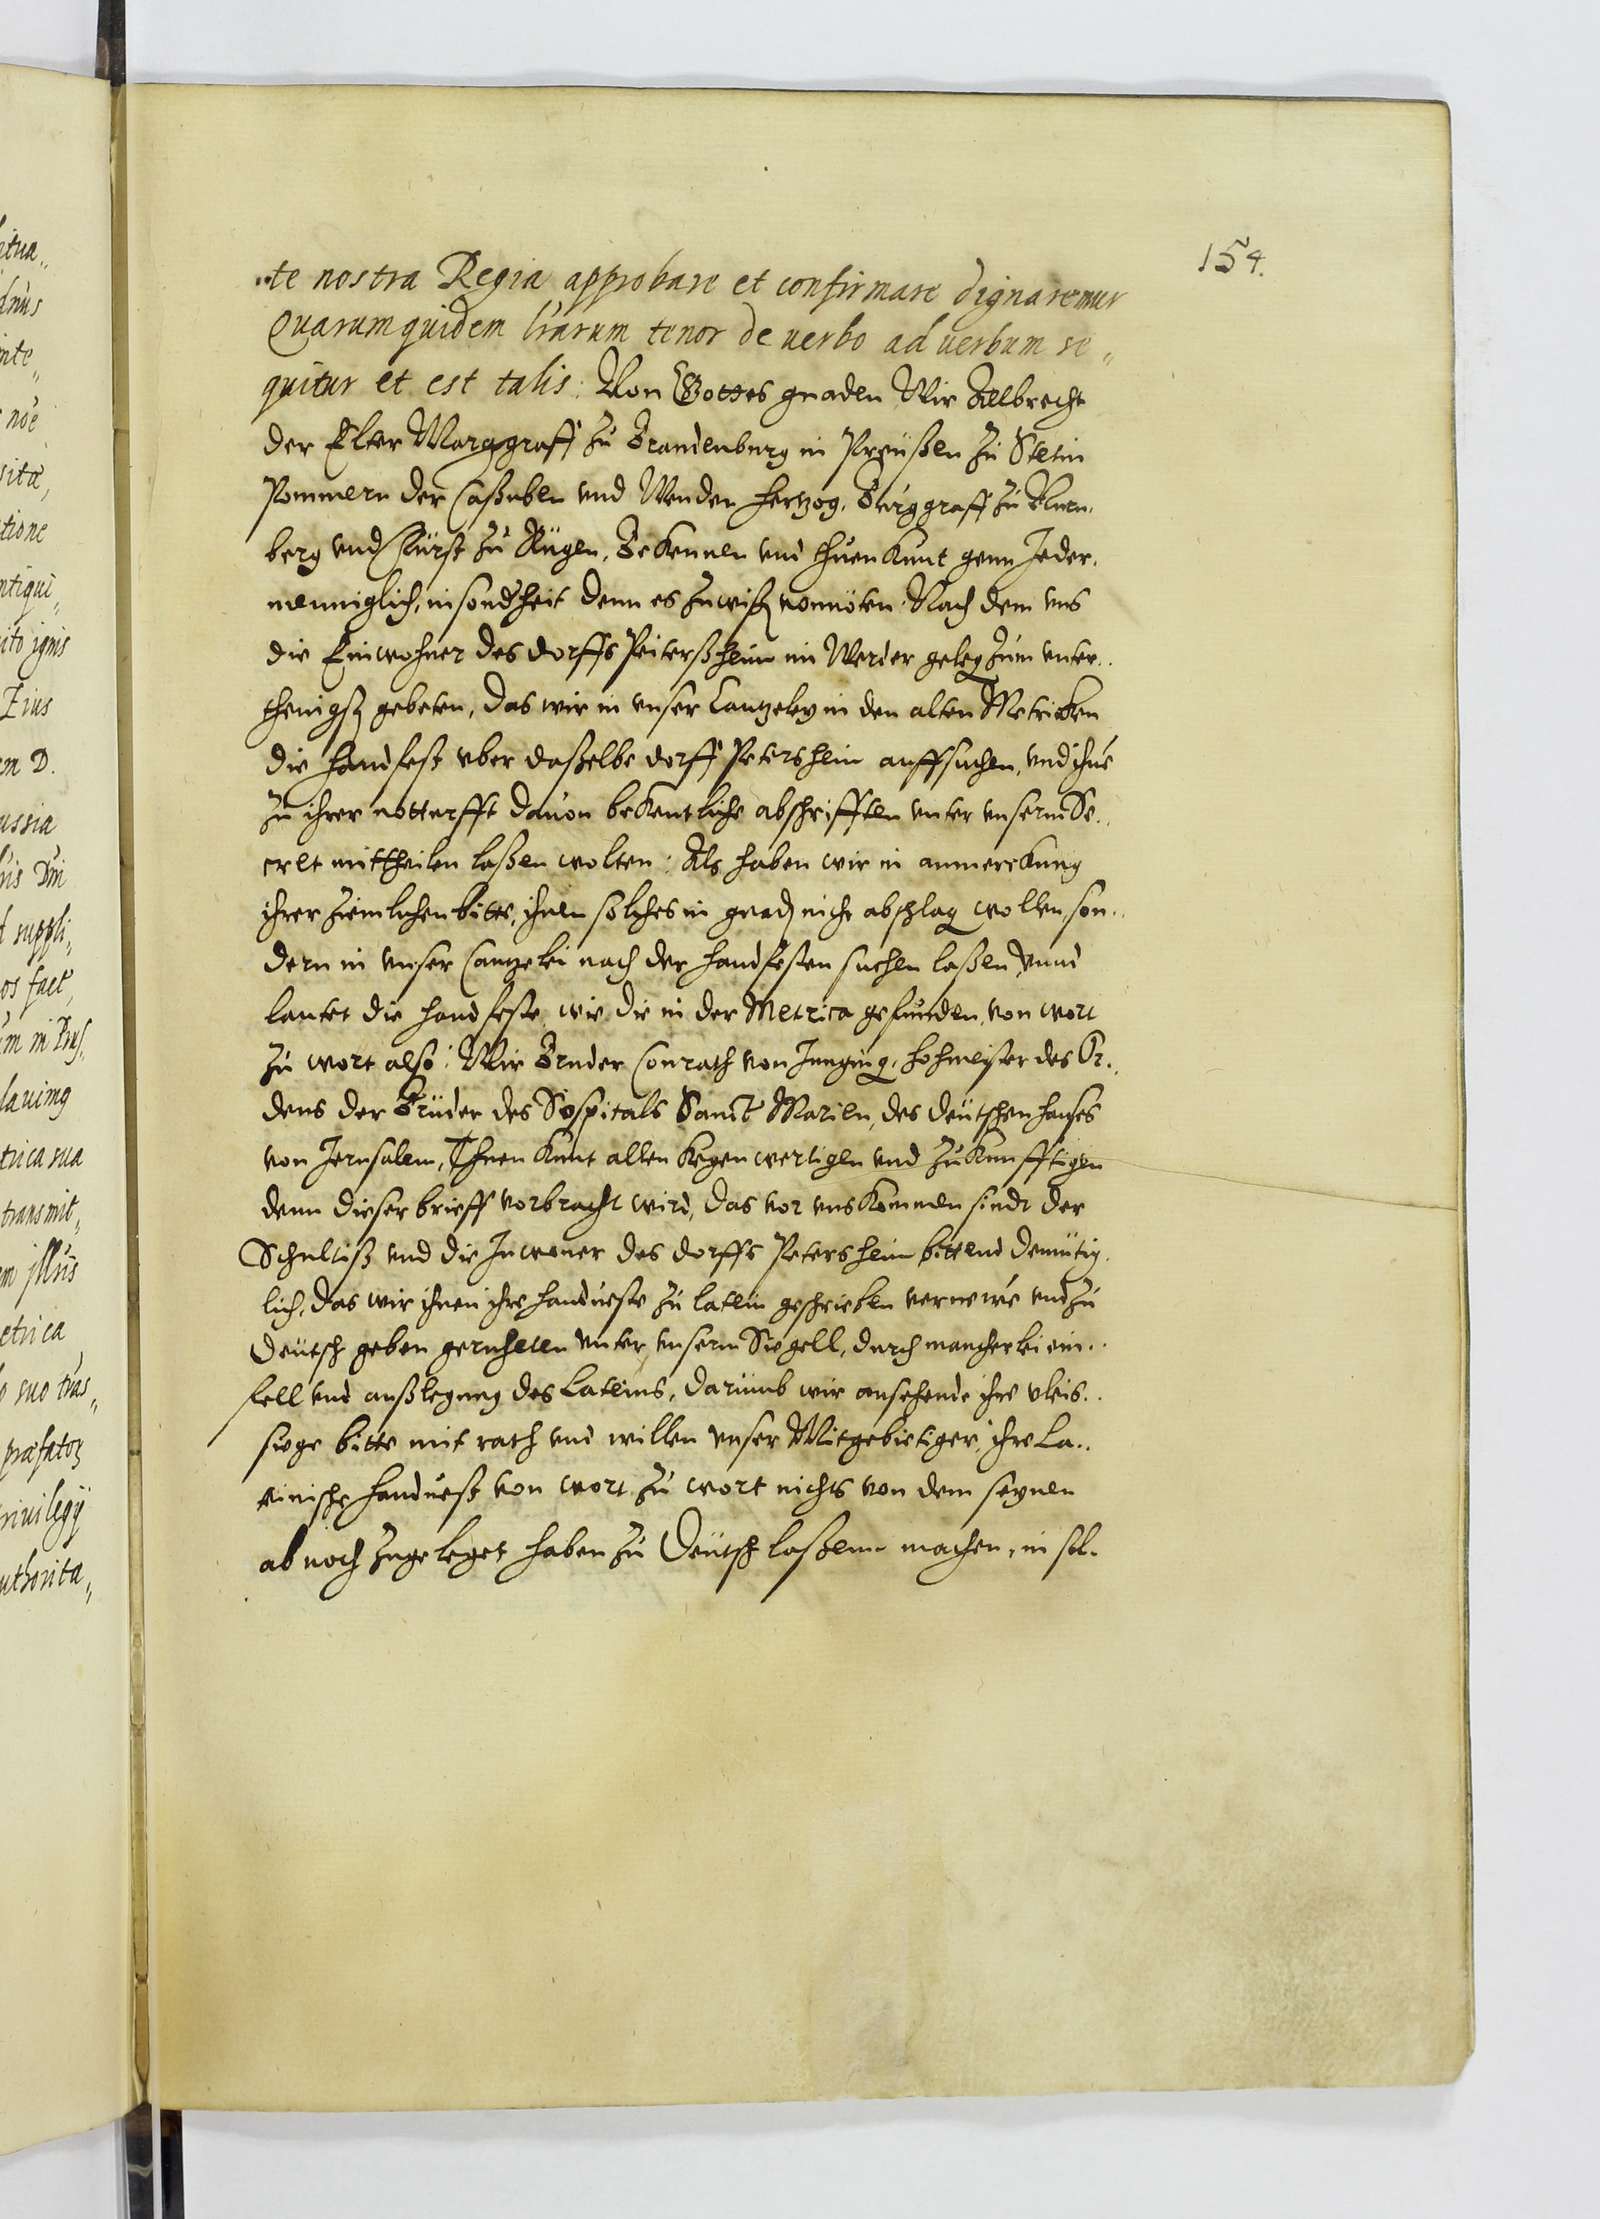 154.
te nostra Regia approbare et confirmare dignaremur
Quarum quidem lrarum tenor de uerbo ad uerbum se„
quitur et est talis: Von Gottes gnaden Wir Albrecht
der Elter Marggraff zu Brandenburg in Preüßen zu Stetin
Pommern der Caßuben vnd Wenden hertzog, Burggraff zu Nurn,
berg vnd Fürst zu Rügen, Bekennen vnd thuen kunt genn Jeder,
menniglich, in sondheit denn es zuwißen vonnöten. Nach dem vns
die Einwohner des dorffs Peiterßheim im Werder gelegen zum vnter..
thenigst gebeten, das wir in vnser Cantzeley in den alten Metricken
die handfest vber daßelbe dorff Petersheim auffsuchen, vnd ihnē
zu ihrer notturfft dauon bekentliche abschrifften vnter vnserm Se..
cret mittheilen laßen wolten: Als haben wir in anmerckung
ihrer ziemlichen bitte, ihnen solches in gnaden nicht abschlagen wollen, son..
dern in vnser Cantzelei nach der handfesten suchen laßen, Vnnd
lautet die handfeste, wie die in der Metrica gefunden, von wort
zu wort also: Wir Bruder Conrath von Jungingen, Hohmeister des Or..
dens der Brüder des Hospitals Sanct Marien, des deütschen hauses
von Jerusalem, Thuen kunt allen kegenwertigen vnd zukunfftigen
denn dieser brieff vorbracht wird, das vor vns kommen sindt der
Schultiß vnd die Inwoner des dorffs Petersheim bittend demütig,
lich, das wir ihnen ihre handueste zu latein geschrieben vernewē vnd zu
Deütsch geben geruheten vnter vnserm Siegell, durch mancherlei ein..
fell vnd außlegung des Lateins, darümb wir ansehende ihre vleis..
sige bitte mit rath vnd willen vnser Mitgebietiger, ihre La..
einische handuest von wort zu wort nichts von dem seynen
ab noch zugeleget haben zu Deütsch laßenn machen, in sol.